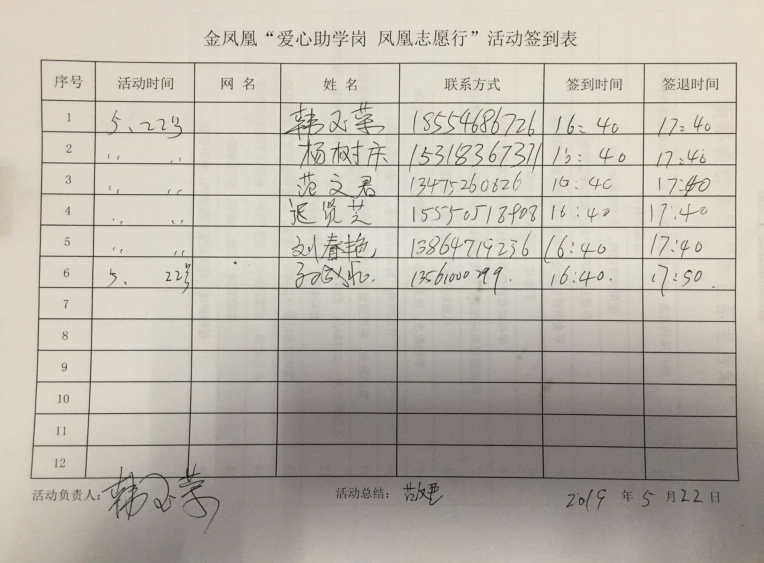 金凤凰“爱心助学岗 凤凰志愿行”活动签到表
序号 活动时间 网 名 姓 名 联系方式 签到时间 签退时间
1 5、22号 韩玉荣 18554686726 16:40 17:40
2 〃 〃 杨树庆 15318367311 16:40 17:40
3 〃 〃 范文君 13475260626 16:40 17:40
4 〃 〃 迟贤芝 15550518908 16:40 17:40
5 〃 〃 刘春艳 13864719236 16:40 17:40
6 5、22号 13561000299. 16:40. 17:50.
7
8
9
10
11
12
活动负责人:韩玉荣 活动总结: 2019 年 5 月 22 日